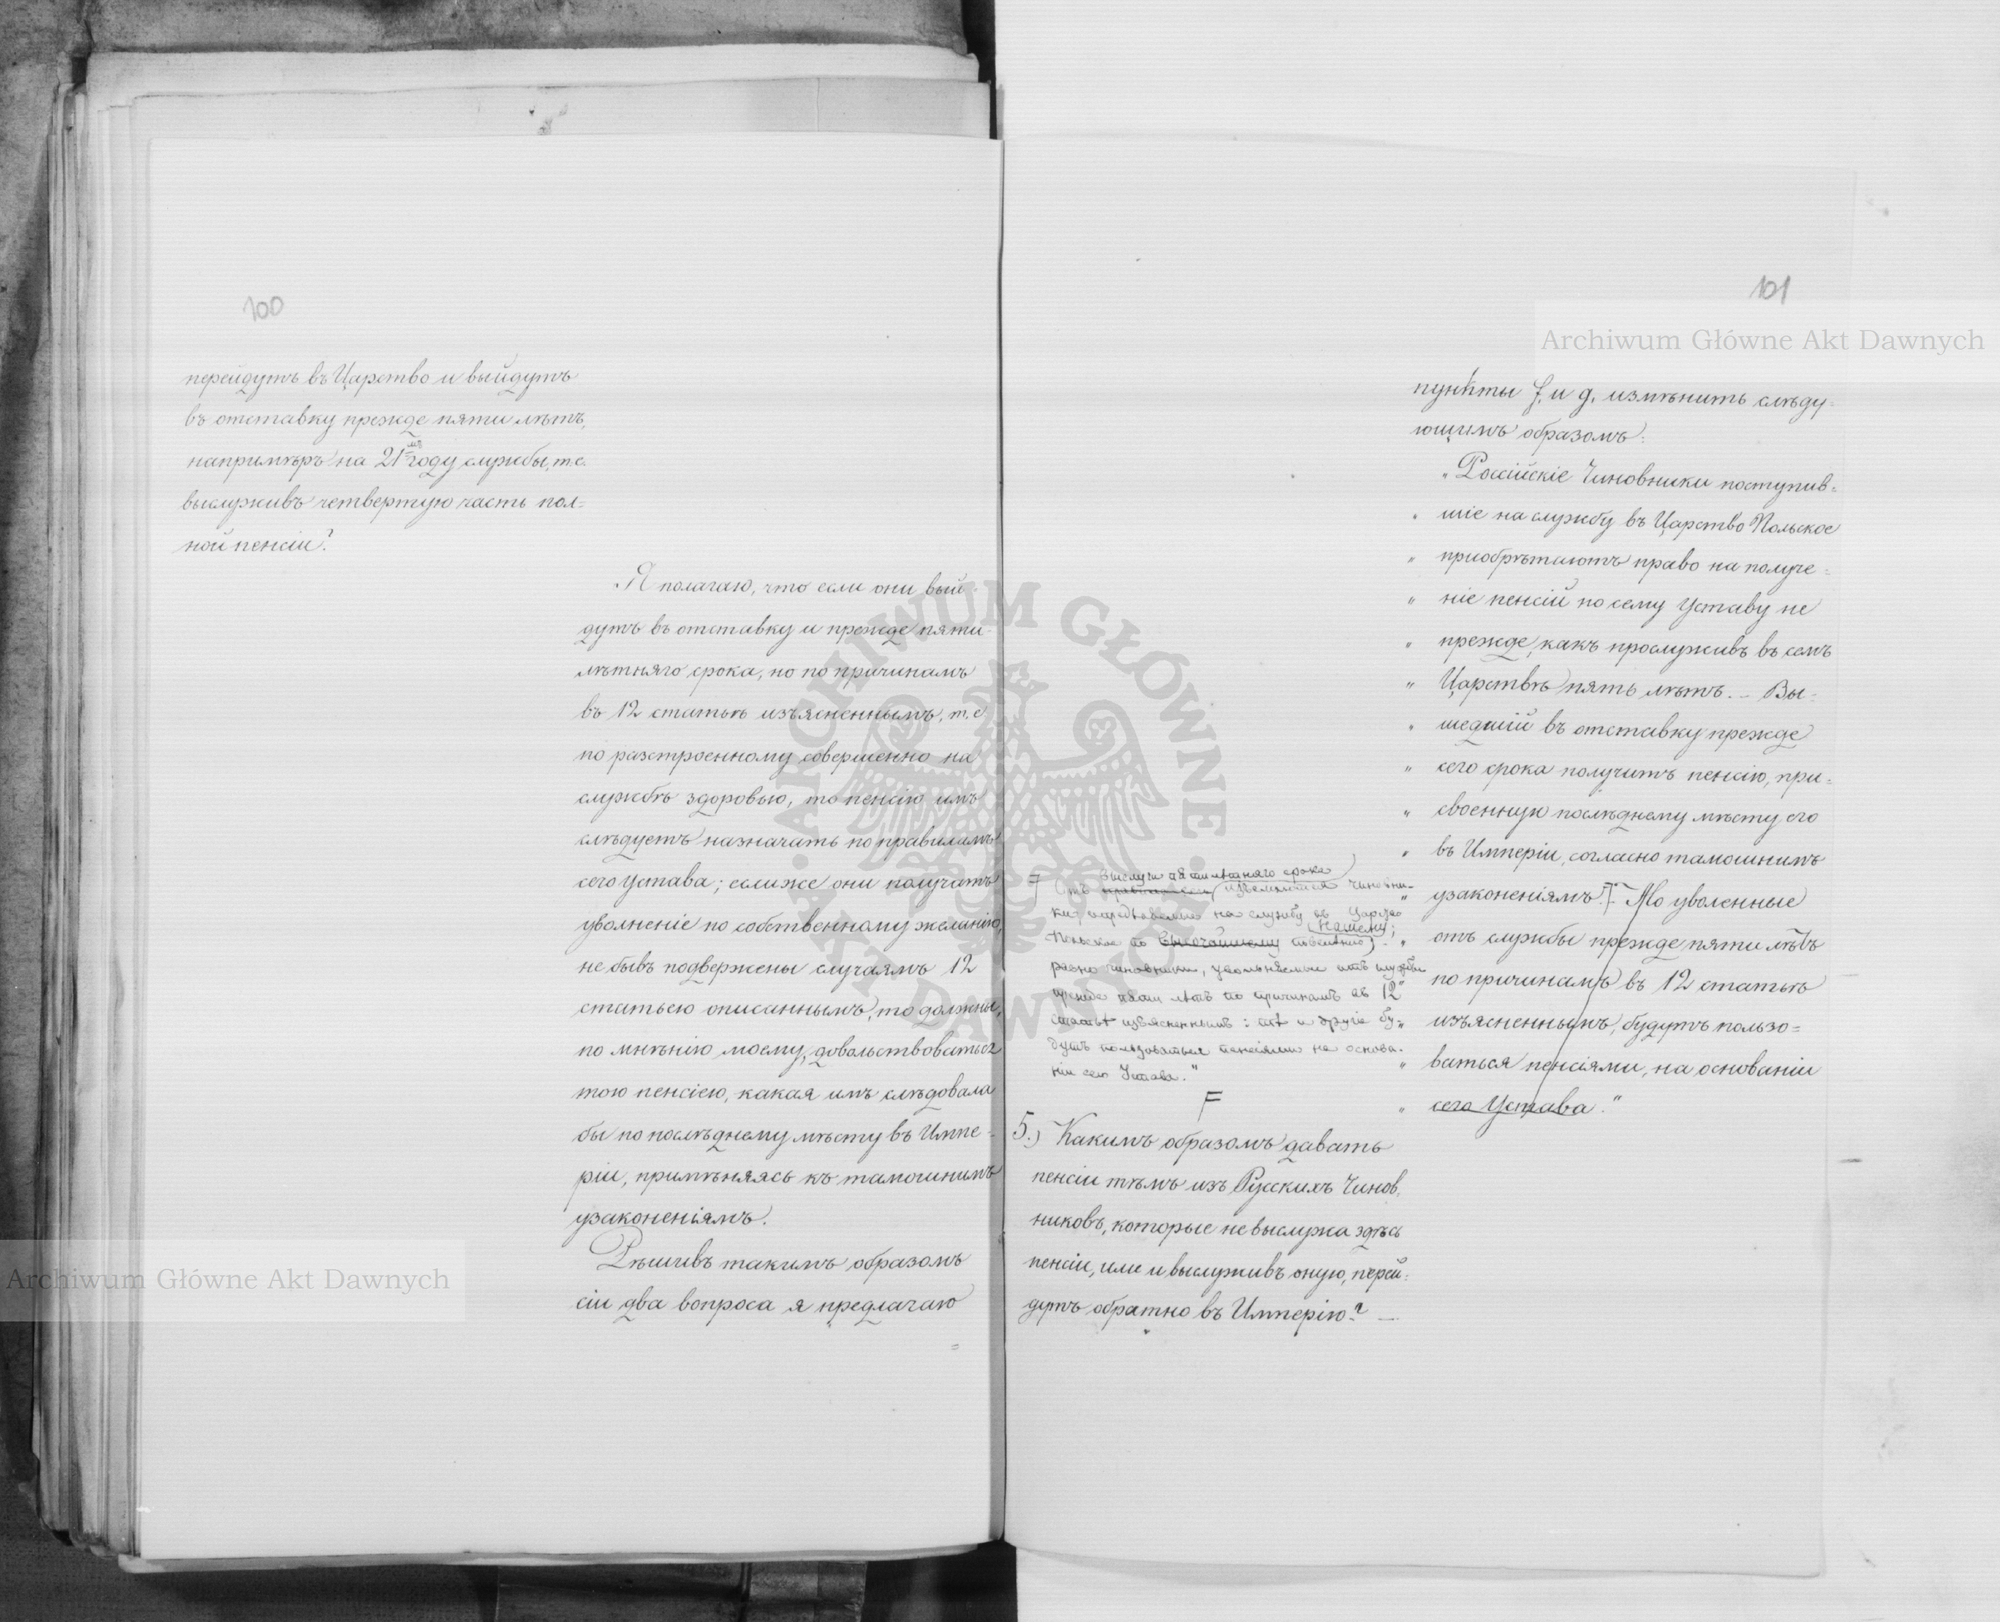 100
перейдутъ въ Царство и выйдутъ
въ отставку прежде пяти лѣтъ,
напримѣръ на 21мъ году службы, т.е.
выслуживъ четвертую часть пол=
ной пенсіи?
Я полагаю, что если они вый-
дутъ въ отставку и прежде пяти-
лѣтняго срока, но по причинамъ
въ 12 статьѣ изъясненнымъ, т.е
по разстроенному совершенно на
службѣ здоровью, то пенсію имъ
слѣдуетъ назначать по правиламъ
сего Устава; если же они получатъ
увольненіе по собственному желанію,
не бывъ подвержены случаямъ 12
статьею описаннымъ, то должны,
по мнѣнію моему, довольствоваться
тою пенсіею, какая имъ слѣдовала
бы по послѣднему мѣсту въ Импе-
ріи, примѣняясь къ тамошнимъ
узаконеніямъ.
Рѣшивъ такимъ образомъ
сіи два вопроса я предлагаю
101
пункты f. и g. измѣнить слѣду-
ющимъ образомъ:
„Россійскіе Чиновники поступив=
„ шіе на службу въ Царство Польское
„ пріобрѣтаютъ право на получе=
„ ніе пенсій по сему Уставу не
„ прежде, какъ прослуживъ въ семъ
„ Царствѣ пять лѣтъ. – Вы=
„ шедшій въ отставку прежде
„ сего срока получитъ пенсію, при=
„ своенную послѣднему мѣсту его
„ въ Имперіи, согласно тамошнимъ
„ узаконеніямъ. F Но уволенные
„ отъ службы прежде пяти лѣтъ
„ по причинамъ въ 12 статьѣ
„ изъясненнымъ, будутъ пользо=
„ ваться пенсіями, на основаніи
„ сего Устава.“
выслуги пятилѣтняго срока
F Отъ изъемлются чиновни-
ки, опредѣляемые на службу въ Царство
Нашему
Польское по Высочайшему
равно чиновники, увольняемые отъ службы
прежде пяти лѣтъ по причинамъ въ 12
статьѣ изъясненнымъ: тѣ и другіе бу-
дутъ пользоваться пенсіями на основа-
ніи сего Устава.“
F
5.) Какимъ образомъ давать
пенсіи тѣмъ изъ Русскихъ Чинов-
никовъ, которые не выслужа здѣсь
пенсіи, или и выслуживъ оную, перей-
дутъ обратно въ Имперію? —
Archiwum Główne Akt Dawnych
Archiwum Główne Akt Dawnych
ARCHIWUM GŁÓWNE
AKT DAWNYCH